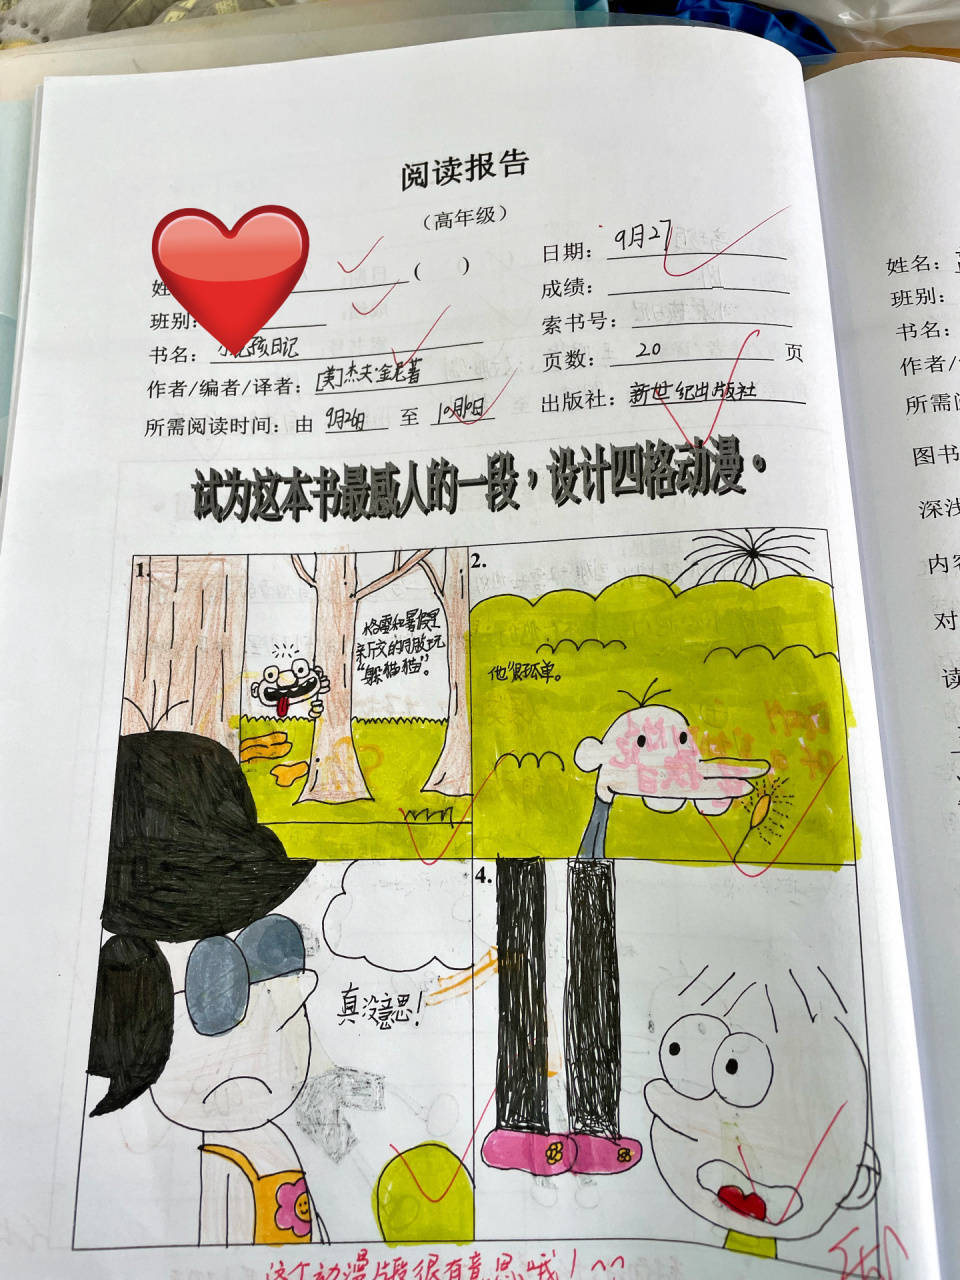 阅读报告
（高年级）
姓 ( )
日期：9月27
班别：
成绩：
索书号：
书名：小屁孩日记
页数：20 页
作者/编者/译者：[美]杰夫·金尼著
出版社：新世纪出版社
所需阅读时间：由 9月26日 至 10月10日
试为这本书最感人的一段，设计四格动漫。
1.
格雷和暑假里
亲所交的朋友玩
“躲猫猫”。
2.
他很孤单。
真没意思！
4.
这个动漫片段很有意思哦！^^
姓名：
班别：
书名：
作者/
所需阅
图书
深浅
内容
对
读